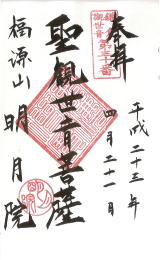 奉拝
鎌倉
観世音
第三十番
平成二十三年
四月二十一日
聖観世音菩薩
福源山
明月院